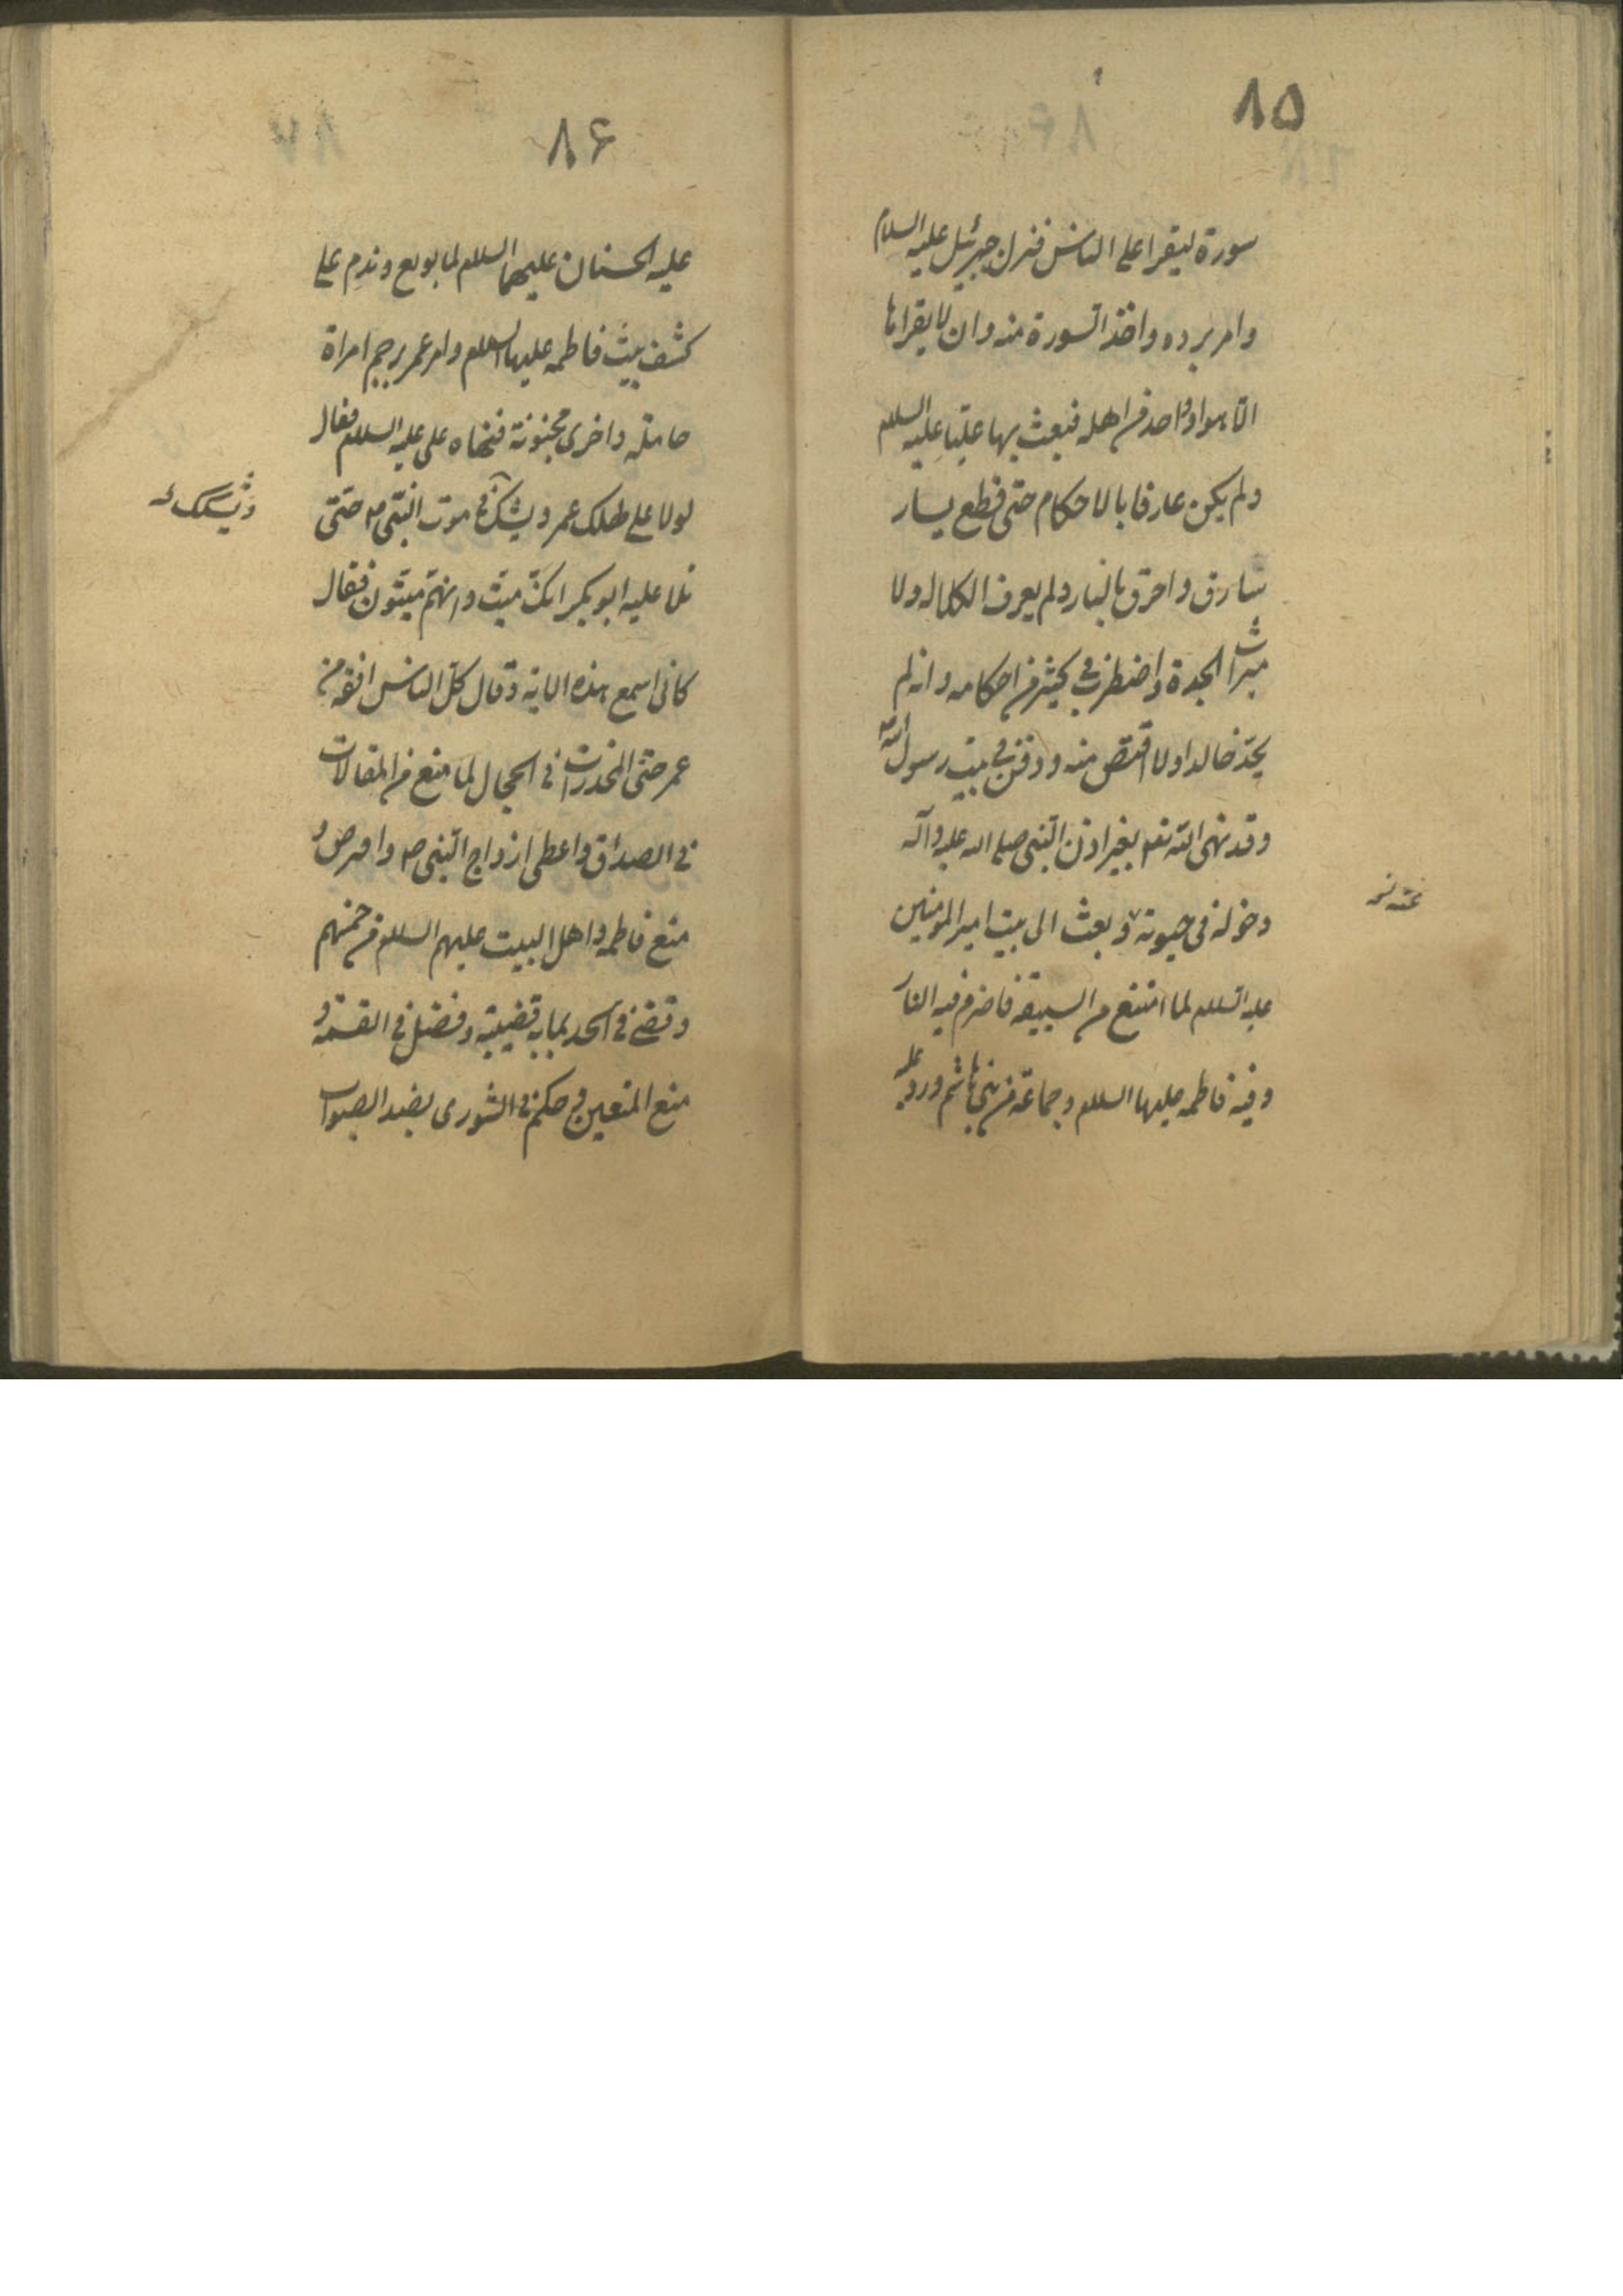 ٨٥
سورة ليقرا على الناس فنزل جبرئيل عليه السلام
وامر برده واخذ السورة منه وان لا يقراها
الا هو او واحد من اهله فبعث بها عليا عليه السلم
ولم يكن عارفا بالاحكام حتى قطع يسار
سارق واحرق بالنار ولم يعرف الكلاله ولا
ميراث الجدة واضطرب في كثير من احكامه وانه لم
يحد خالدا ولا اقتص منه ودفن في بيت رسول الله
وقد نهى الله تعه بغير اذن النبي صلى الله عليه وآله
دخوله في حيوته وبعث الى بيت امير المومنين
عليه السلم لما امتنع من البيعة فاضرم فيه النار
وفيه فاطمه عليها السلم وجماعة من بني هاشم ورد عليه
٨۶
عليه الحسنان عليهما السلم لما بويع وندم على
كشف بيت فاطمه عليها السلم وامر عمر برجم امراة
حاملة واخرى مجنونة فنهاه على عليه السلم فقال
لولا على لهلك عمر ويشك في موت النبى ص حتى
تلا عليه ابو بكر انك ميت وانهم ميتون فقال
كانى اسمع هذه الاية وقال كل الناس افقه من
عمر حتى المخدرات في الحجال لما منع من المقالات
في الصداق واعطى ازواج النبى ص واقرض و
منع فاطمه واهل البيت عليهم السلم من خمسهم
وقضى في الحد بمايه قضية وفضل في القسمة و
منع المتعين وحكم في الشورى بضد الصواب